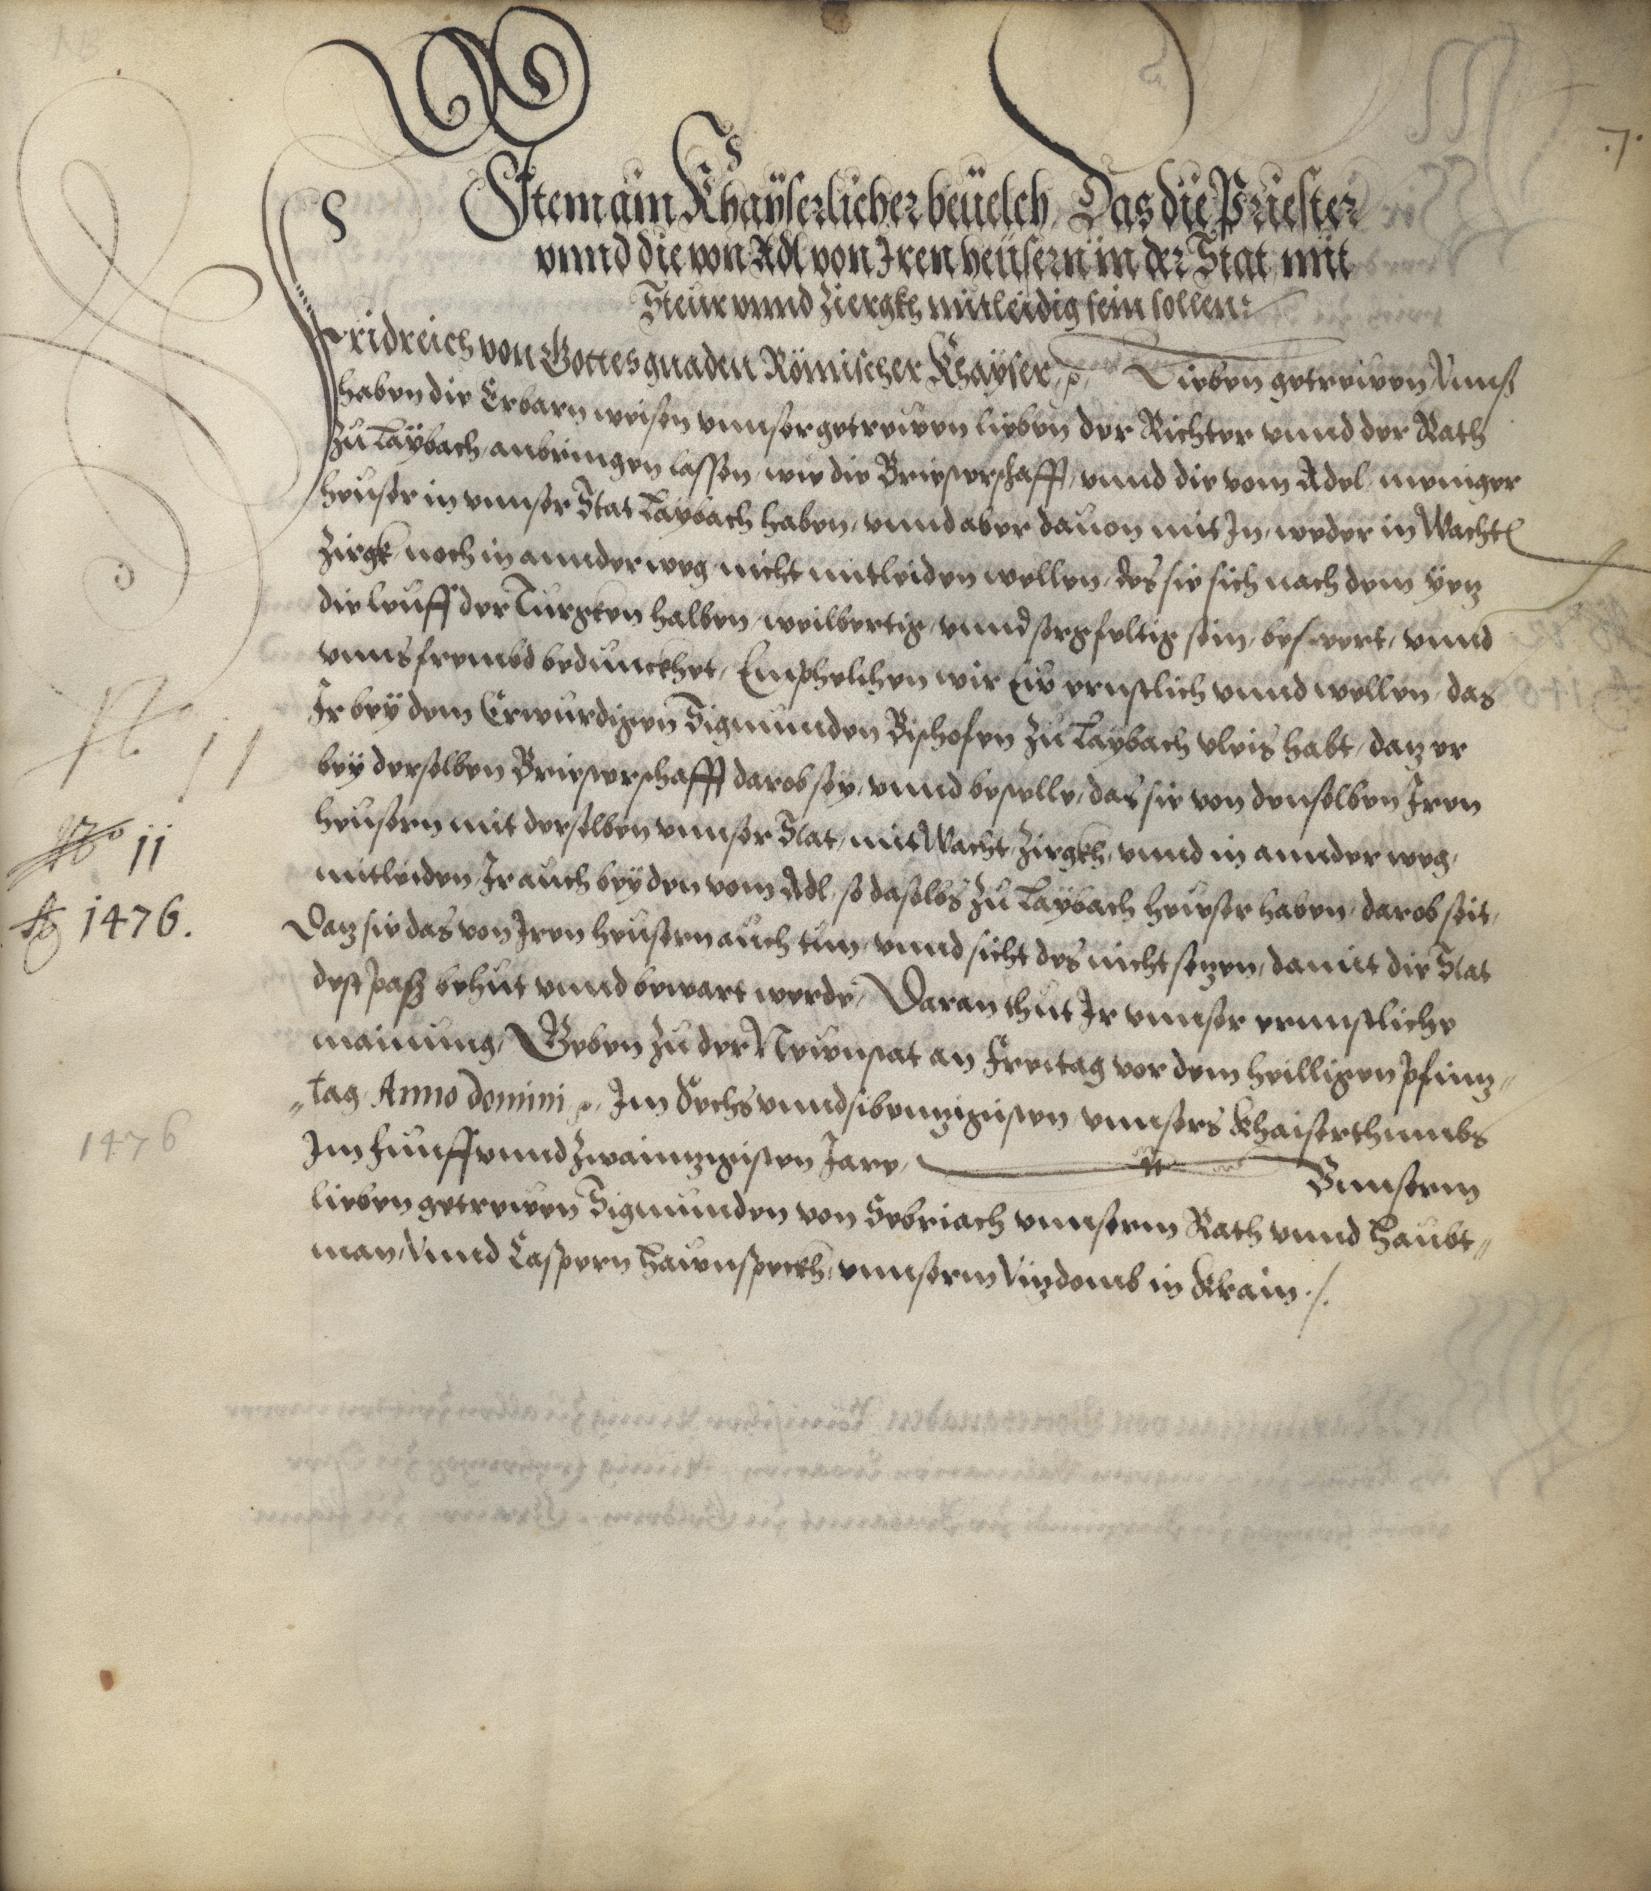 .7.
Item ain Khaÿserlicher beuelch, Das die Priester
vnnd die von Adl von Iren heüsern in der Stat mit
Steur vnnd Ziergkh mitleidig sein sollen:
Fridreich von Gottes gnaden Römischer Khaÿser, Lieben getrewen, Vnnß
haben die Erbarn weisen vnnser getrewen lieben der Richter vnnd der Rath
zu Laÿbach, anbringen lassen, wie die Briesterschafft, vnnd die vom Adel, meniger
heuser in vnnser Stat Laÿbach haben, vnnd aber dauon mit In, weder in Wacht
Zirgk, noch in annder weg, nicht mitleiden wellen, des sie sich nach dem yetz
die leuff der Turgken halben, weilbertig, vnnd sorgfeltig sein, beswert, vnnd
vnns frembd beduncket, Emphelchen wir Ew ernstlich vnnd wellen, das
Ir beÿ dem Erwurdigen Sigmunden Bischofen zu Laÿbach vleis habt, daz er
beÿ derselben Briesterschafft darob seÿ, vnnd bestelle, das sie von denselben Iren
heusern mit derselben vnnser Stat, mit Wacht, Zirgkh, vnnd in annder weg,
mitleiden, Ir auch beÿ den vom Adl, so daselbs zu Laÿbach heuser haben, darob seit,
Daz sie das von Iren heusern auch tun, vnnd sicht des nicht setzen, damit die Stat
dest paß behut vnnd bewart werde, Daran thut Ir vnnser ernnstliche
mainung, Geben zu der Newnstat an Freitag vor dem heilligen Pfintz„
„tag, Anno domini, Im Sechs vnnd sibenzigisten, vnnsers Khaiserthumbs
Im funff vnnd zwainnzigisten Jare, Vnnserm
lieben getrewen Sigmunden von Sebriach vnnserm Rath vnnd Haubt„
man, Vnnd Caspern Hawnspeckh, vnnserm Vitzdomb in Krain ./.
No 11
No 11
Ao 1476.
1476